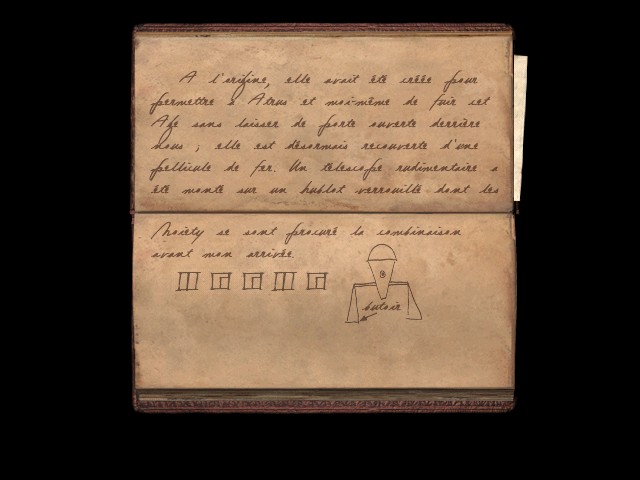 A l'origine, elle avait été créée pour
permettre à Atrus et moi-même de fuir cet
Age sans laisser de porte ouverte derrière
nous ; elle est désormais recouverte d'une
pellicule de fer. Un télescope rudimentaire a
été monté sur un hublot verrouillé dont les
Moiety se sont procuré la combinaison
avant mon arrivée.
butoir